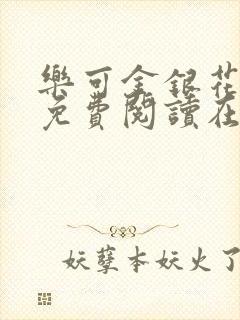 樂可金銀花
免費閱讀在
妖孽本妖火了